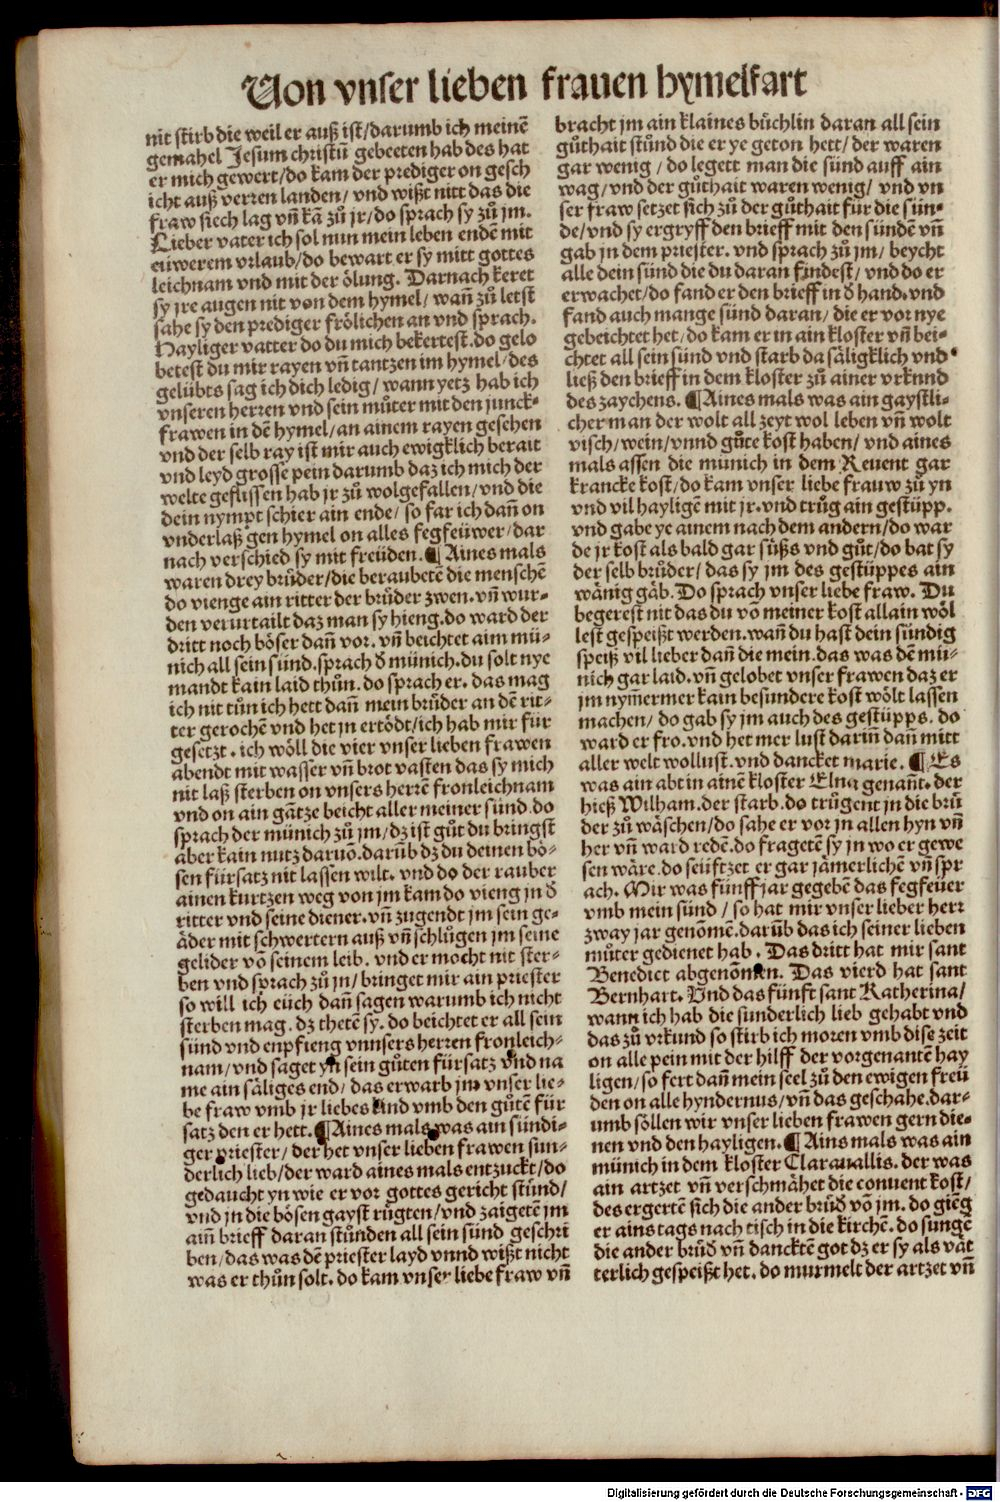 Von vnser lieben frauen hymelfart
nit stirb die weil er auß ist/darumb ich meinē
gemahel Jesum christū gebeeten hab des hat
er mich gewert/do kam der prediger on gesch
icht auß verren landen/vnd wißt nitt das die
fraw siech lag vn̄ kā zů jr/do sprach sy zů jm.
Lieber vater ich sol nun mein leben endē mit
eüwerem vrlaub/do bewart er sy mitt gottes
leichnam vnd mit der ölung. Darnach keret
sy jre augen nit von dem hymel/wan̄ zů letst
sahe sy den prediger frölichen an vnd sprach.
Hayliger vatter do du mich bekertest.do gelo
betest du mir rayen vn̄ tantzen im hymel/des
gelübts sag ich dich ledig/wann yetz hab ich
vnseren herren vnd sein můter mit den junck-
frawen in dē hymel/an ainem rayen gesehen
vnd der selb ray ist mir auch ewigklich berait
vnd leyd grosse pein darumb daz ich mich der
welte geflissen hab jr zů wolgefallen/vnd die
dein nympt schier ain ende/so far ich dan̄ on
vnderlaß gen hymel on alles fegfeüwer/dar
nach verschied sy mit freüden.¶ Aines mals
waren drey brůder/die beraubetē die menschē
do vienge ain ritter der brůder zwen.vn̄ wur-
den verurtailt daz man sy hieng.do ward der
dritt noch böser dan̄ vor.vn̄ beichtet aim mü-
nich all sein sünd.sprach d̄ münich.du solt nye
mandt kain laid thůn.do sprach er.das mag
ich nit tůn ich hett dan̄ mein brůder an dē rit-
ter gerochē vnd het jn ertödt/ich hab mir für
gesetzt.ich wöll die vier vnser lieben frawen
abendt mit wasser vn̄ brot vasten das sy mich
nit laß sterben on vnsers herrē fronleichnam
vnd on ain gātze beicht aller meiner sünd.do
sprach der münich zů jm/dz ist gůt du bringst
aber kain nutz daruō.darūb dz du deinen bö-
sen fürsatz nit lassen wilt.vnd do der rauber
ainen kurtzen weg von jm kam do vieng jn d̄
ritter vnd seine diener.vn̄ zugendt jm sein ge-
äder mit schwertern auß vn̄ schlůgen jm seine
gelider vō seinem leib.vnd er mocht nit ster-
ben vnd sprach zů jn/bringet mir ain priester
so will ich eüch dan̄ sagen warumb ich nicht
sterben mag.dz thetē sy.do beichtet er all sein
sünd vnd enpfieng vnnsers herren fronleich-
nam/vnd saget yn sein gůten fürsatz vnd na
me ain säliges end/das erwarb jm vnser lie-
be fraw vmb jr liebes kind vmb den gůtē für
satz den er hett.¶Aines mals was ain sündi-
ger priester/der het vnser lieben frawen sun-
derlich lieb/der ward aines mals entzuckt/do
gedaucht yn wie er vor gottes gericht stůnd/
vnd jn die bösen gayst rügten/vnd zaigetē jm
ain̄ brieff daran stůnden all sein sünd geschri
ben/das was dē priester layd vnnd wißt nicht
was er thůn solt.do kam vnser liebe fraw vn̄
bracht jm ain klaines büchlin daran all sein
gůthait stůnd die er ye geton hett/der waren
gar wenig/do legett man die sünd auff ain
wag/vnd der gůthait waren wenig/vnd vn
ser fraw setzet sich zů der gůthait für die sün-
de/vnd sy ergryff den brieff mit den sündē vn̄
gab jn dem priester.vnd sprach zů jm/beycht
alle dein sünd die du daran findest/vnd do er
erwachet/do fand er den brieff in d̄ hand.vnd
fand auch mange sünd daran/die er vor nye
gebeichtet het/do kam er in ain kloster vn̄ bei-
chtet all sein sünd vnd starb da säligklich vnd
ließ den brieff in dem kloster zů ainer vrkund
des zaychens.¶Aines mals was ain gaystli-
cher man der wolt all zeyt wol leben vn̄ wolt
visch/wein/vnnd gůte kost haben/vnd aines
mals assen die münich in dem Reuent gar
krancke kost/do kam vnser liebe frauw zů yn
vnd vil hayligē mit jr.vnd trůg ain gestüpp.
vnd gabe ye ainem nach dem andern/do war
de jr kost als bald gar süßs vnd gůt/do bat sy
der selb brůder/das sy jm des gestüppes ain
wänig gäb.Do sprach vnser liebe fraw.Du
begerest nit das du vō meiner kost allain wöl
lest gespeißt werden.wan̄ du hast dein sündig
speiß vil lieber dan̄ die mein.das was dē mü-
nich gar laid.vn̄ gelobet vnser frawen daz er
jm nym̄ermer kain besundere kost wölt lassen
machen/do gab sy jm auch des gestüpps.do
ward er fro.vnd het mer lust darin̄ dan̄ mitt
aller welt wollust.vnd dancket marie.¶Es
was ain abt in ainē kloster Elna genan̄t.der
hieß Wilham.der starb.do trůgent jn die brů
der zů wäschen/do sahe er vor jn allen hyn vn̄
her vn̄ ward redē.do fragetē sy jn wo er gewe
sen wäre.do seüftzet er gar jämerlichē vn̄ spr
ach.Mir was fünff jar gegebē das fegfeüer
vmb mein sünd/so hat mir vnser lieber herr
zway jar genōmē.darūb das ich seiner lieben
můter gedienet hab.Das dritt hat mir sant
Benedict abgenōmen.Das vierd hat sant
Bernhart.Vnd das fünft sant Katherina/
wann ich hab die sunderlich lieb gehabt vnd
das zů vrkund so stirb ich moren vmb dise zeit
on alle pein mit der hilff der vorgenantē hay
ligen/so fert dan̄ mein seel zů den ewigen freü
den on alle hyndernus/vn̄ das geschahe.dar-
umb söllen wir vnser lieben frawen gern die-
nen vnd den hayligen.¶Ains mals was ain
münich in dem kloster Clarauallis.der was
ain artzet vn̄ verschmähet die conuent kost/
des ergertē sich die ander brůd̄ vō jm.do giēg
er ains tags nach tisch in die kirchē.do sungē
die ander brůd̄ vn̄ dancktē got dz er sy als vät
terlich gespeißt het.do murmelt der artzet vn̄
Digitalisierung gefördert durch die Deutsche Forschungsgemeinschaft - DFG